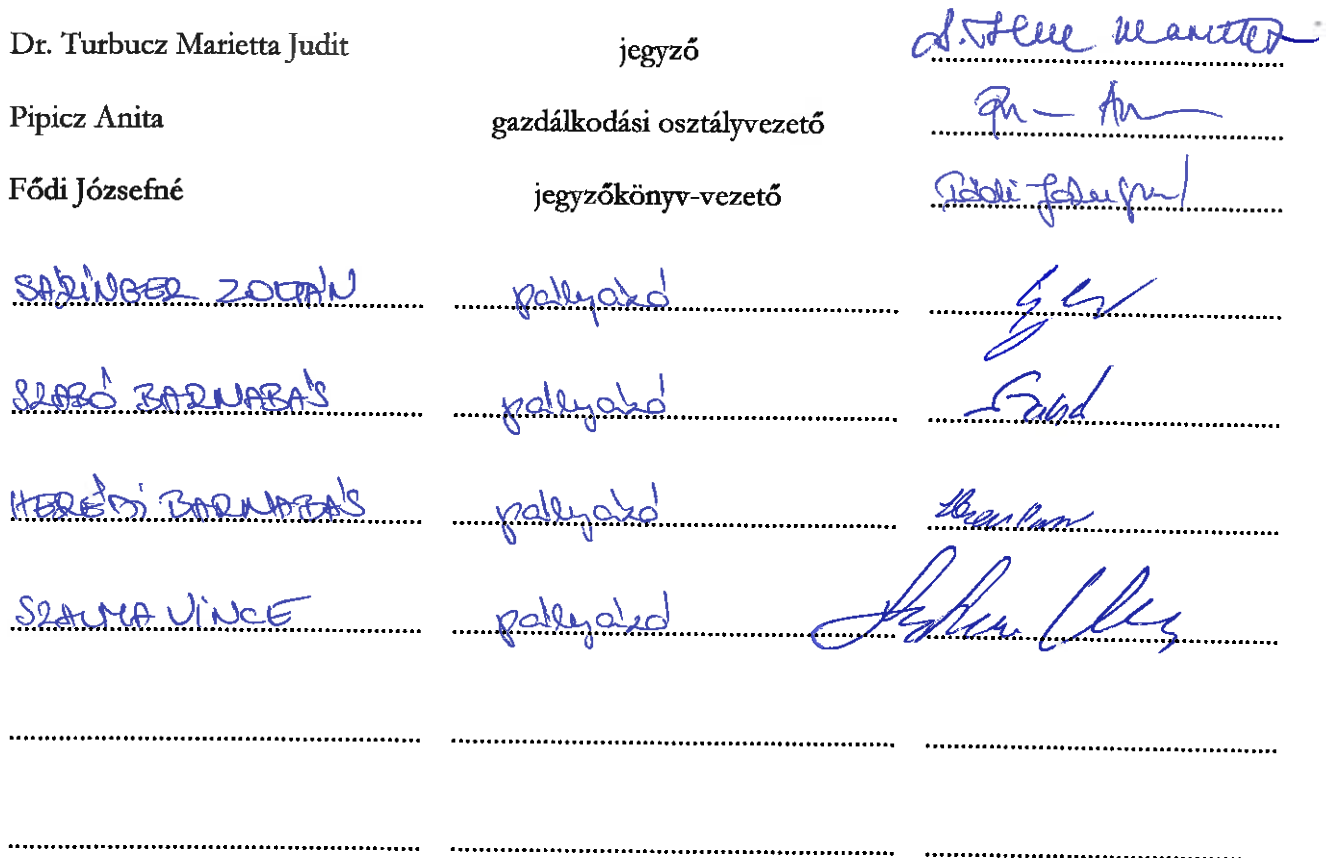 Dr. Turbucz Marietta Judit jegyző
Pipicz Anita gazdálkodási osztályvezető
Fődi Józsefné jegyzőkönyv-vezető Fődi Józsefné
SÁRINGER ZOLTÁN pályázó
SZABÓ BARNABÁS pályázó Szabó
HERÉDI BARNABÁS pályázó
SZALMA VINCE pályázó